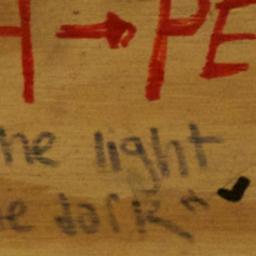 → PE
he light
e dark"